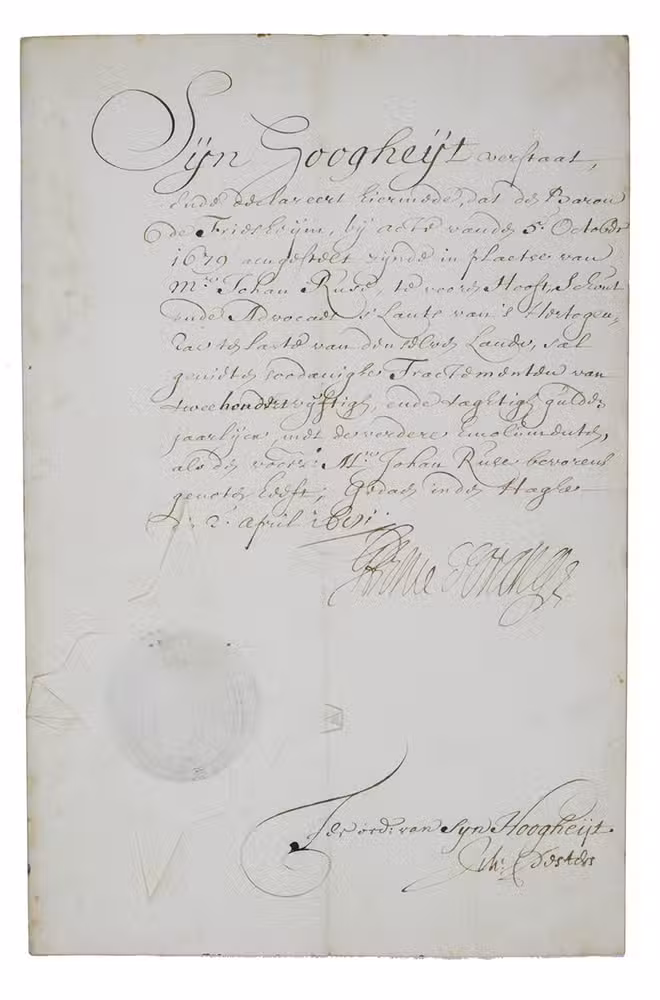 Syn Hoogheijt verstaat,
ende declareert hiermede, dat de Baron
de Friesheijm, bij acte vanden 5e October
1679 aengestelt zijnde in plaetse van
Mr. Johan Ruse, te vooren Hooft, Schout
ende Advocaet 's Lants van 's Hertogen
te laste van den Lande, sal
genieten soodanighe Tractementen van
twee hondert vijftigh, ende taghtigh gulden
jaarlijcx, met de verdere Emolumenten,
als de voorn. Mr. Johan Ruse bevorens
genoten heeft; Gedaen inden Haghe
den 2e April
G H Prince d'Orange
Ter ord. van Syn Hoogheijt.